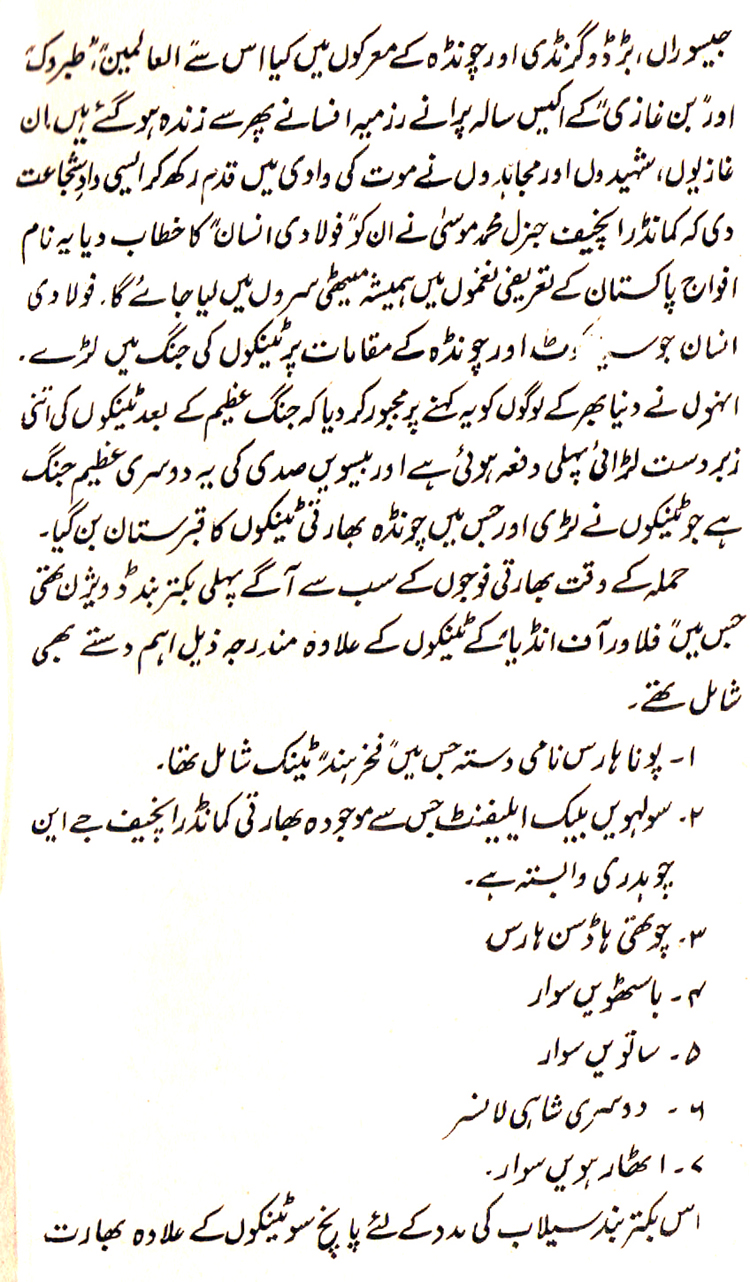 جیسوراں، بڑڈوگرنڈی اور چونڈہ کے معرکوں میں کیا اس سے "العالمین"، "طبروک"
اور "بن غازی" کے اکیس سالہ پرانے رزمیہ افسانے پھر سے زندہ ہو گئے ہیں۔ ان
غازیوں، شہیدوں اور مجاہدوں نے موت کی وادی میں قدم رکھ کر ایسی دادِ شجاعت
دی کہ کمانڈر انچیف جنرل محمد موسیٰ نے ان کو "فولادی انسان" کا خطاب دیا یہ نام
افواج پاکستان کے تعریفی نغموں میں ہمیشہ میٹھی سروں میں لیا جائے گا۔ فولادی
انسان جو اور چونڈہ کے مقامات پر ٹینکوں کی جنگ میں لڑے۔
انہوں نے دنیا بھر کے لوگوں کو یہ کہنے پر مجبور کر دیا کہ جنگ عظیم کے بعد ٹینکوں کی اتنی
زبردست لڑائی پہلی دفعہ ہوئی ہے اور بیسویں صدی کی یہ دوسری عظیم جنگ
ہے جو ٹینکوں نے لڑی اور جس میں چونڈہ بھارتی ٹینکوں کا قبرستان بن گیا۔
حملہ کے وقت بھارتی فوجوں کے سب سے آگے پہلی بکتر بند ڈویژن تھی
جس میں "فلاور آف انڈیا" کے ٹینکوں کے علاوہ مندرجہ ذیل اہم دستے بھی
شامل تھے۔
۱۔ پونا ہارس نامی دستہ جس میں "فخر ہند" ٹینک شامل تھا۔
۲۔ سولہویں بلیک ایلیفنٹ جس سے موجودہ بھارتی کمانڈر انچیف جے این
چوہدری وابستہ ہے۔
۳۔ چوتھی ہاڈسن ہارس
۴۔ باسٹھویں سوار
۵۔ ساتویں سوار
۶۔ دوسری شاہی لانسر
۷۔ اٹھارہویں سوار۔
اس بکتر بند سیلاب کی مدد کے لئے پانچ سو ٹینکوں کے علاوہ بھارت